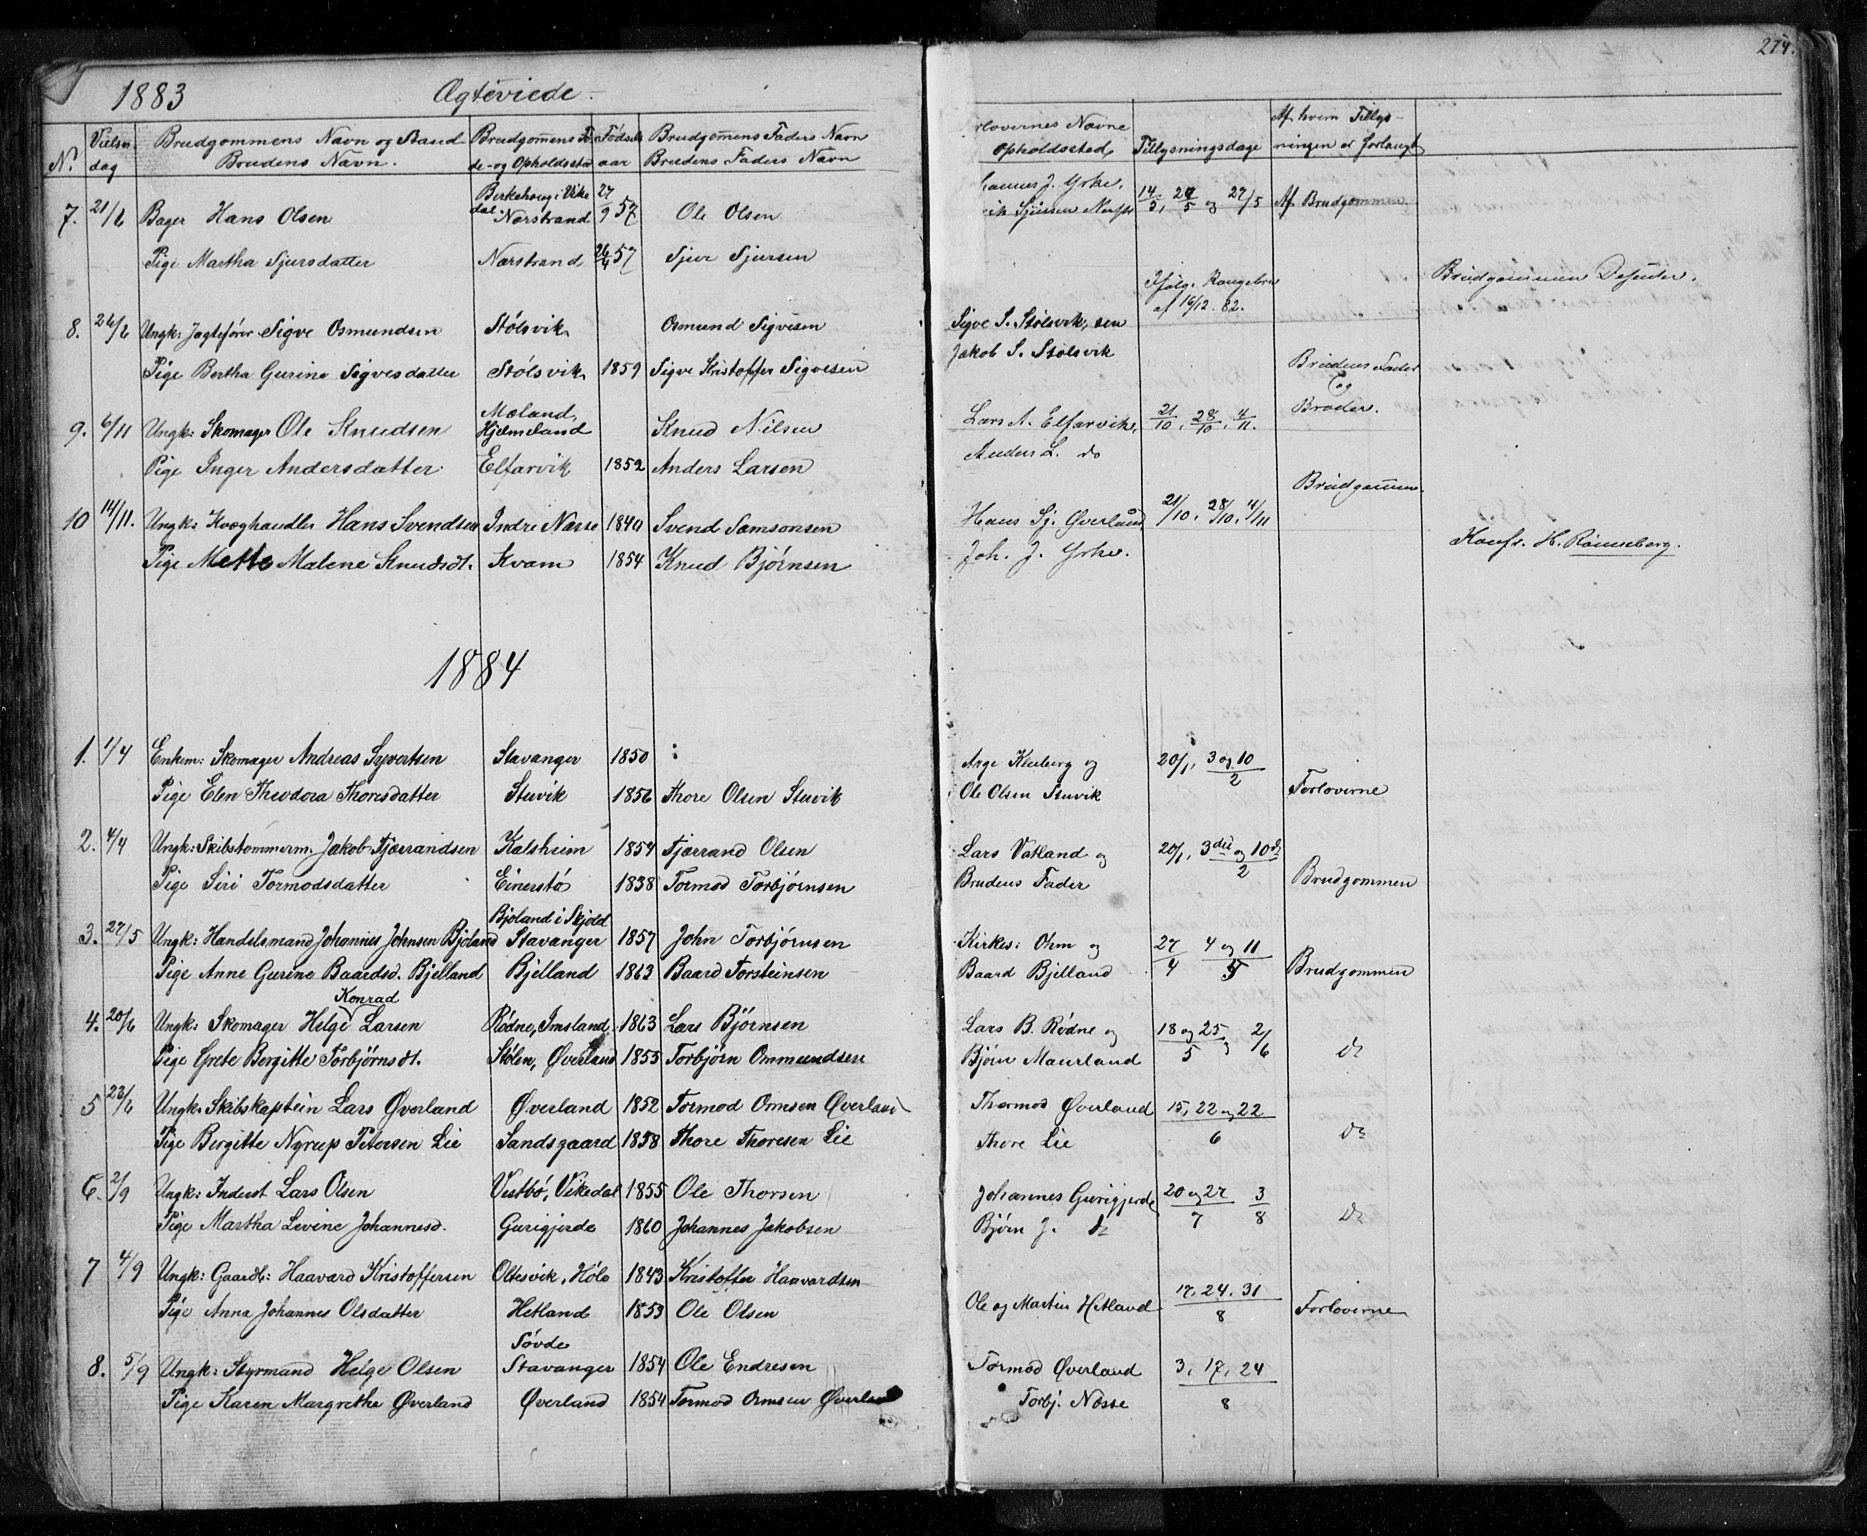 274.
1883 Ægteviede
No Vielsesdag Brudgommens Navn og Stand Brudens Navn. Brudgomens Fødsels aar Brudgomens Faders Navn Brudens Faders Navn
Forlovernes Navne Opholdssted Tillysningsdage Af hvem Tillysningen er forlangt
7. 21/6 Bager Hans Olsen Vikedal Nærstrand 27/9 57 Ole Olsen 14/5, 24/5 og 27/5 Af Brudgommen
Pige Martha Sjursdatter Nærstrand 57 Sjur Sjursen
Ifølge Kongebrev af 16/12. 82. Brudgommen Desenter.
8. 26/6 Ungk: Jagtefører Sigve Osmundsen Stølsvik Osmund Sigvesen Sigve S. Stølsvik, sen
Pige Bertha Gurine Sigvesdatter Stølsvik 1859 Sigve Kristoffer Sigvesen Jakob S. Stølsvik Brudens Fader og Broder.
9. 6/11 Ungk: Skomager Ole Knudsen Mæland, Hjelmeland Knud Nilsen Lars A. Elfarvik, 21/10, 28/10, 4/11.
Pige Inger Andersdatter Elfarvik 1852 Anders Larsen Anders L. do Brudgommen.
10 14/11. Ungk: Kvæghandler Hans Svendsen Indre Næsse 1840 Svend Samsonsen Hans Sj. Øverland 21/10, 28/10, 4/11
Pige Mette Malene Knudsdt. Kvam 1854 Knud Bjørnsen Joh. J. Yrke. Konfr. H. Rønneberg.
1884
1. 1/4 Enkem: Skomager Andreas Syvertsen Stavanger 1850 : Aage Kleiberg og 20/1, 3 og 10/2
Pige Elen Theodora Thoresdatter Stuvik 1856 Thore Olsen Stuvik Ole Olsen Stuvik Forloverne
2. 4/4 Ungk: Skibstommerm. Jakob Fjærrandsen Kalsheim 1854 Fjærrand Olsen Lars Vatland og 20/1, 3die og 10de/2
Pige Siri Tormodsdatter Einerstø 1838 Tormod Torbjørnsen Brudens Fader Brudgommen
3. 27/5 Ungk: Handelsmand Johannes Johnsen Bjøland Bjøland i Skjold Stavanger 1857 John Torbjørnsen Kirkes: Ohm og 27/4 4 og 11/5
Pige Anne Gurine Baardsd. Bjelland Bjelland 1863 Baard Torsteinsen Baard Bjelland Brudgommen
4. 20/6 Ungk: Skomager Helge Konrad Larsen Rødne, Imsland 1863 Lars Bjørnsen Lars B. Rødne og 18 og 25/5, 2/6
Pige Grete Bergitte Torbjørnsdt. Stølen, Øverland 1855 Torbjørn Ommundsen Bjørn Maurland do
5 23/6 Ungk. Skibskaptein Lars Øverland Øverland 1852 Tormod Ormsen Øverland Thormod Øverland 15, 22 og 22/6
Pige Bergitte Nyrup Petersen Lie Sandsgaard 1858 Thore Thoresen Lie Thore Lie do
6. 2/9 Ungk: Inderst Lars Olsen Vestbø, Vikedal 1855 Ole Thorsen Johannes Gurigjerde 20 og 27/7 3/8
Pige Martha Levine Johannesd. Gurigjerde 1860 Johannes Jakobsen Bjørn J. do do
7 4/9 Ungk: Gaardb: Haavard Kristoffersen Oltesvik, Høle 1843 Kristoffer Haavardsen 17, 24, 31/8
Pige Anna Johannes Olsdatter Hetland 1853 Ole Olsen Ole og Martin Hetland Forloverne
8. 5/9 Ungk: Styrmand Helge Olsen Søvde Stavanger 1854 Ole Endresen Tormod Øverland 3, 17, 24/8
Pige Karen Margrethe Øverland Øverland 1854 Tormod Ormsen Øverland Torbj. Næsse